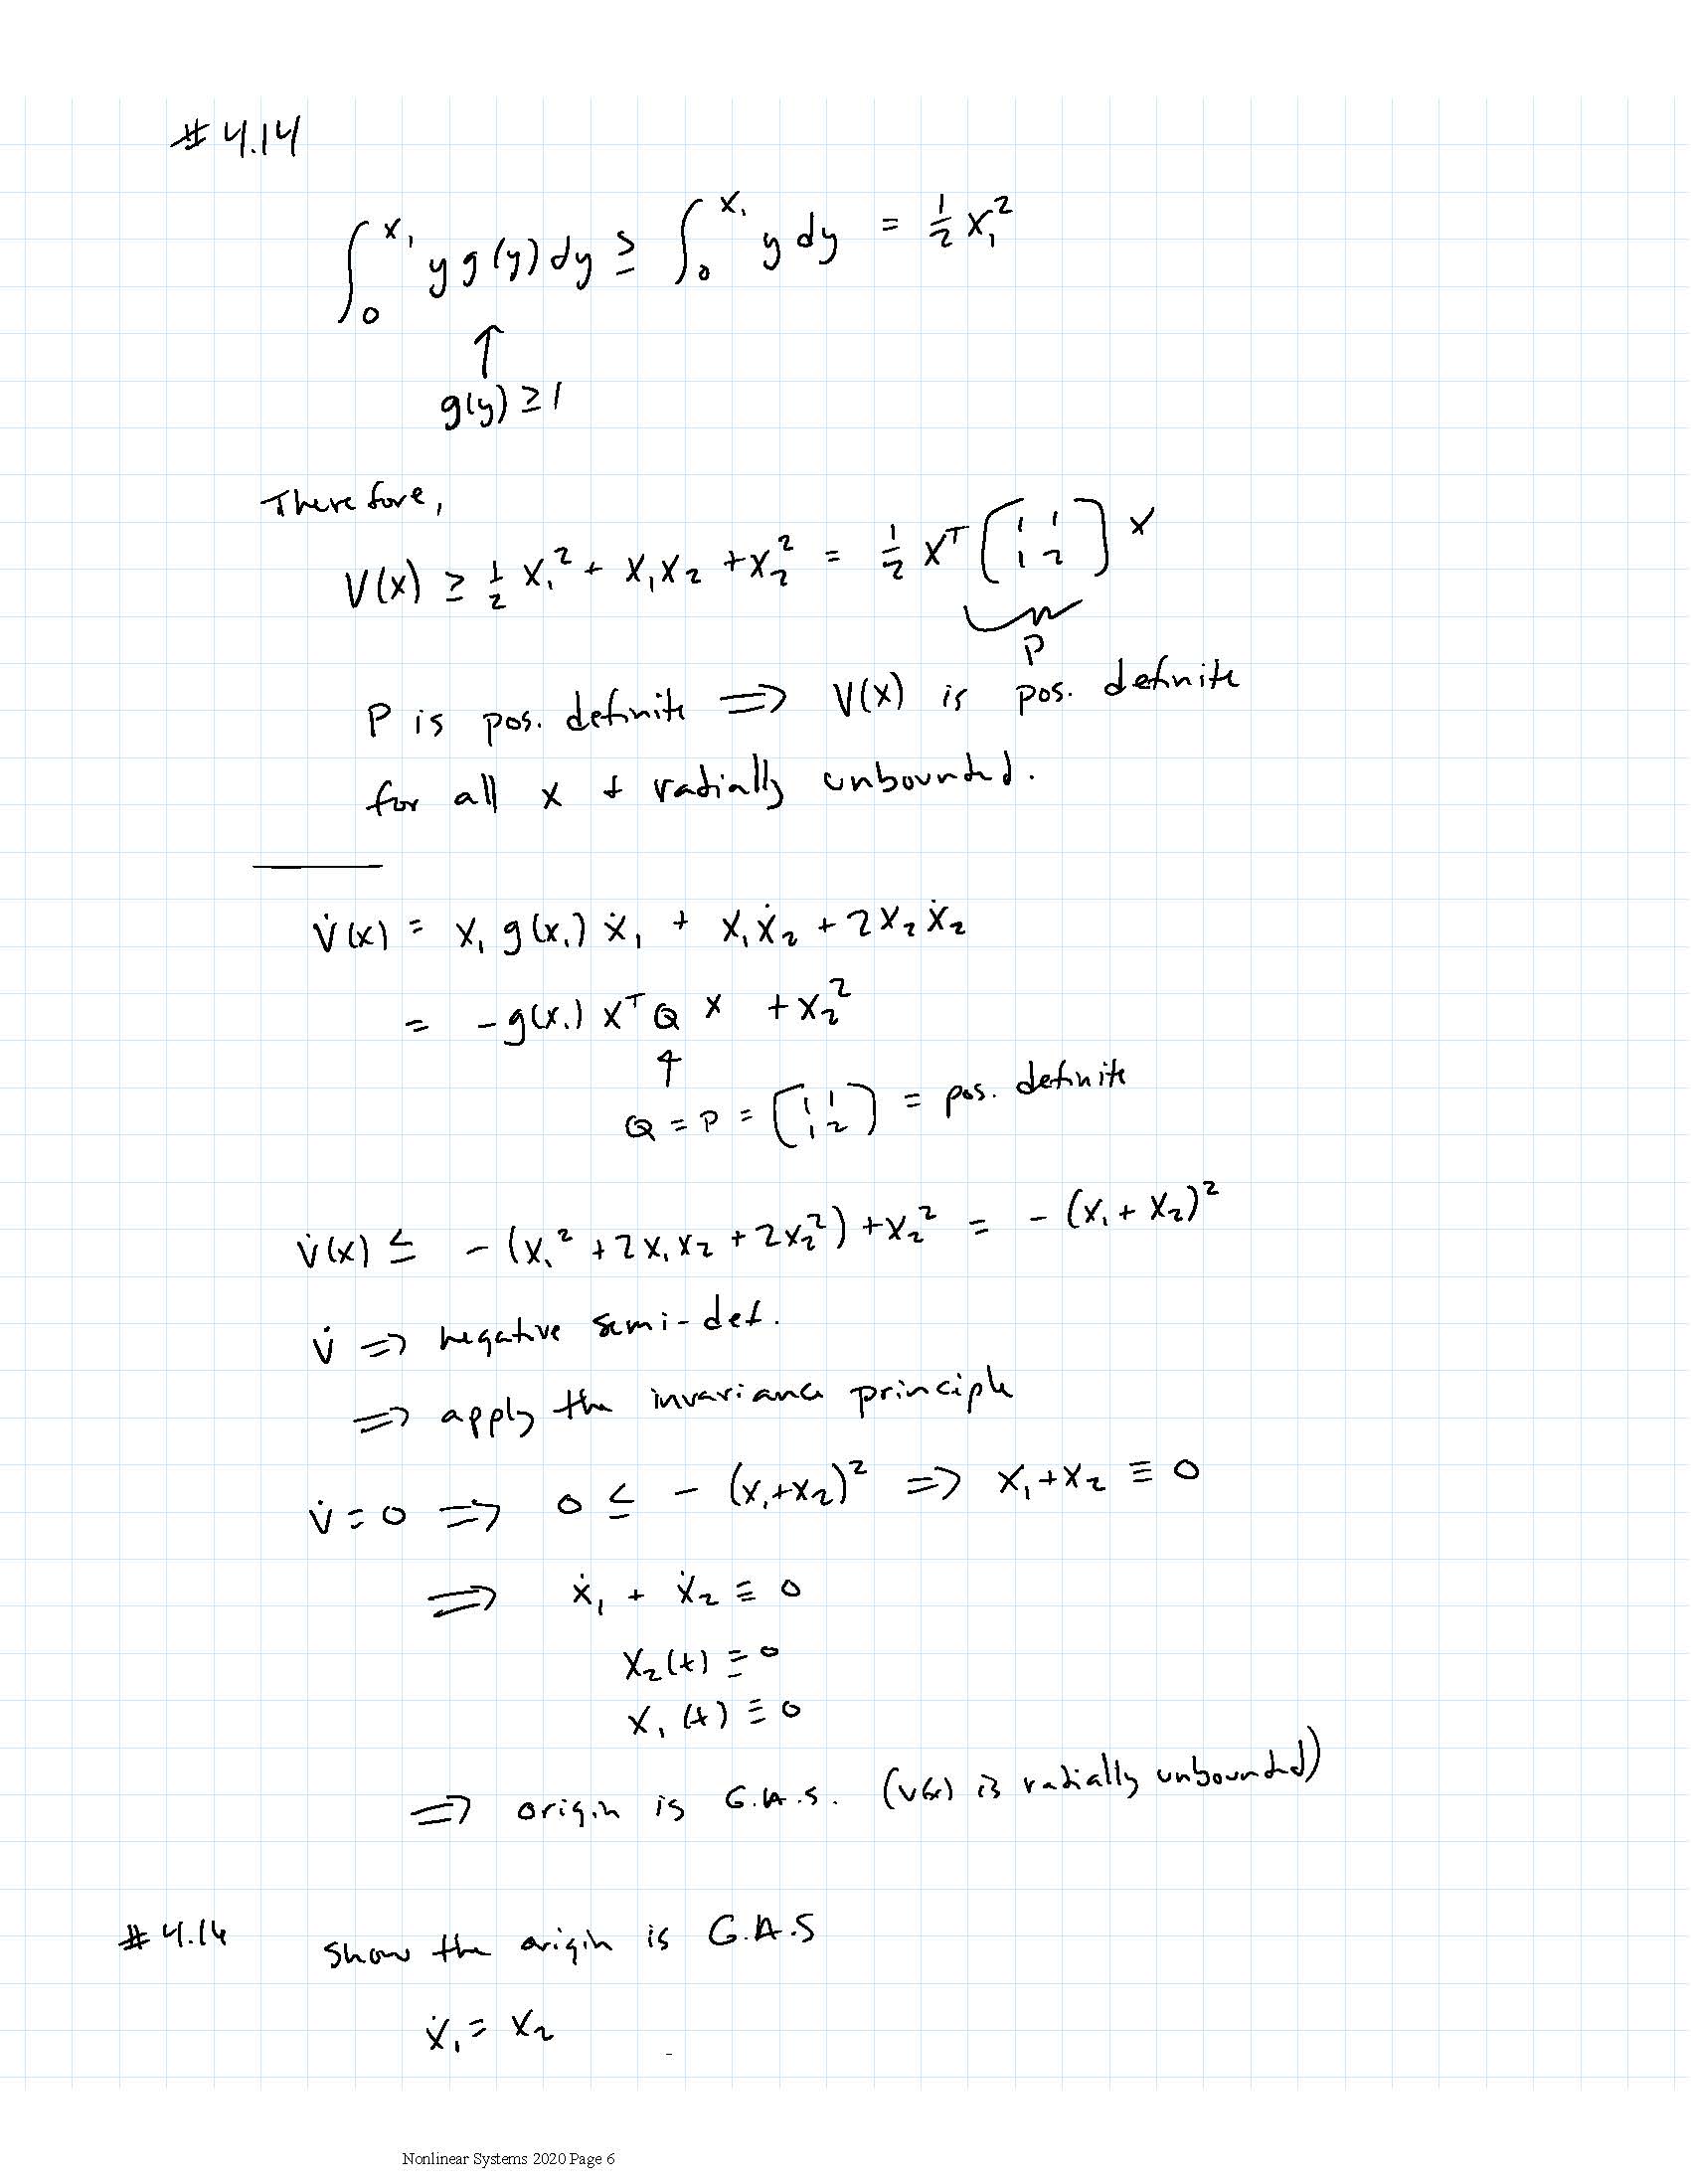 # 4.14
∫₀^x₁ y g(y) dy ≥ ∫₀^x₁ y dy = 1/2 x₁²
↑
g(y) ≥ 1
Therefore,
V(x) ≥ 1/2 x₁² + x₁x₂ + x₂² = 1/2 xᵀ [1 1; 1 2] x
P
P is pos. definite ⟹ V(x) is pos. definite
for all x + radially unbounded.
V̇(x) = x₁ g(x₁) ẋ₁ + x₁ẋ₂ + 2x₂ẋ₂
= -g(x₁) xᵀ Q x + x₂²
↑
Q = P = [1 1; 1 2] = pos. definite
V̇(x) ≤ -(x₁² + 2x₁x₂ + 2x₂²) + x₂² = -(x₁ + x₂)²
V̇ ⟹ negative semi-def.
⟹ apply the invariance principle
V̇ = 0 ⟹ 0 ≤ -(x₁+x₂)² ⟹ x₁+x₂ ≡ 0
⟹ ẋ₁ + ẋ₂ ≡ 0
x₂(t) ≡ 0
x₁(t) ≡ 0
⟹ origin is G.A.S. (V(x) is radially unbounded)
# 4.16 show the origin is G.A.S
ẋ₁ = x₂
Nonlinear Systems 2020 Page 6